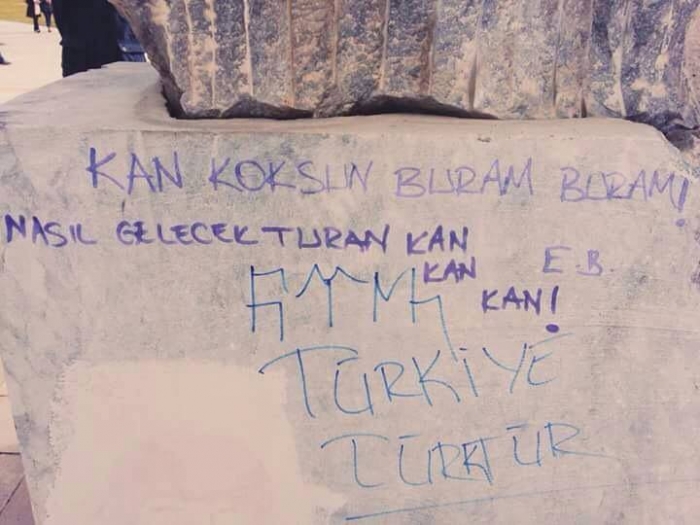 KAN KOKSUN BURAM BURAM!
NASIL GELECEK TURAN KAN
KAN E.B.
KAN!
TÜRKİYE
TÜRKTÜR